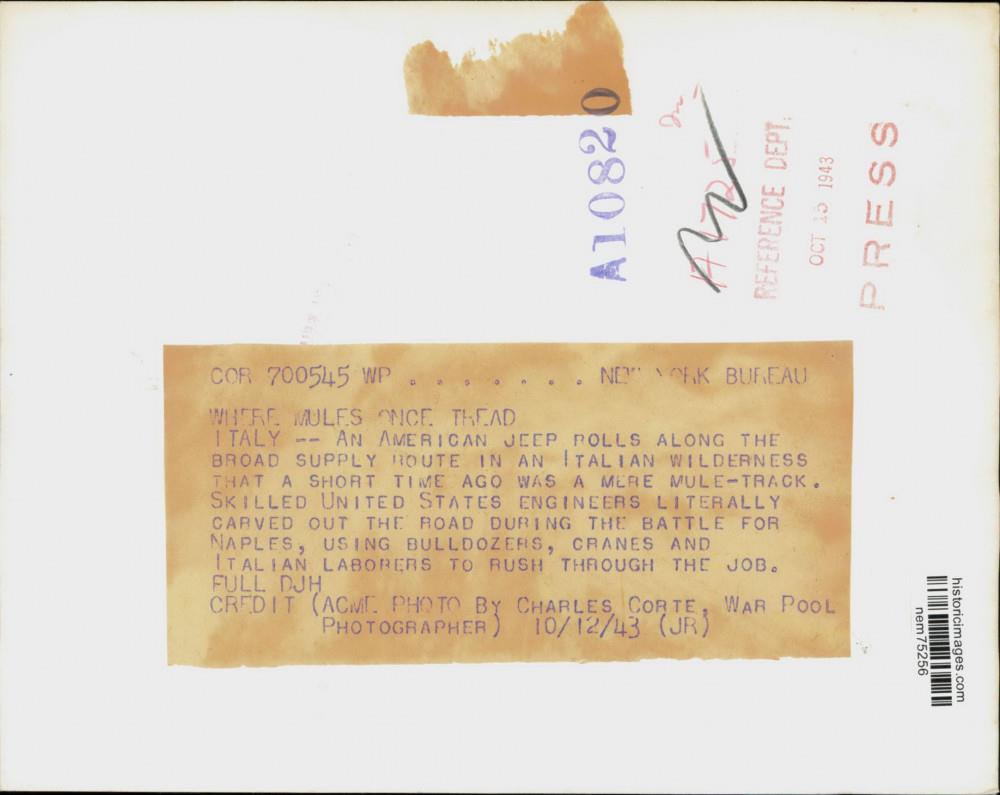 A10820
REFERENCE DEPT.
OCT 1943
PRESS
COR 700545 WP . . . . . . . . NEW YORK BUREAU
WHERE MULES ONCE TREAD
ITALY -- AN AMERICAN JEEP ROLLS ALONG THE
BROAD SUPPLY ROUTE IN AN ITALIAN WILDERNESS
THAT A SHORT TIME AGO WAS A MERE MULE-TRACK.
SKILLED UNITED STATES ENGINEERS LITERALLY
CARVED OUT THE ROAD DURING THE BATTLE FOR
NAPLES, USING BULLDOZERS, CRANES AND
ITALIAN LABORERS TO RUSH THROUGH THE JOB.
FULL DJH
CREDIT (ACME PHOTO BY CHARLES CORTE, WAR POOL
PHOTOGRAPHER) 10/12/43 (JR)
historicimages.com
nem75256